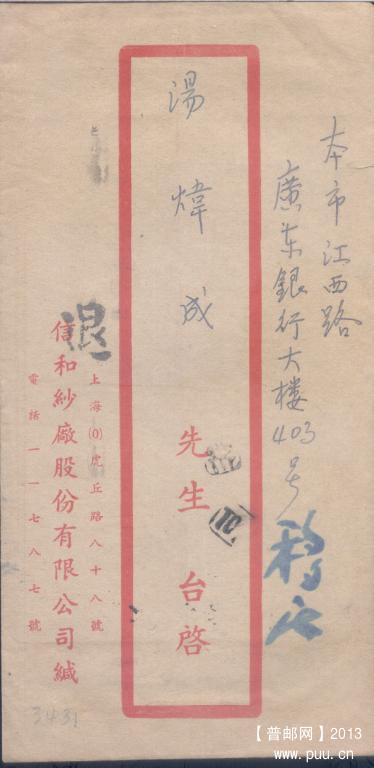 本市江西路
廣东銀行大楼403号
移
湯煒成
先生 台啓
退
上海(0)虎丘路八十八號
信和紗廠股份有限公司緘
電話一一七八七號
3431
【普邮网】2013
www.puu.cn